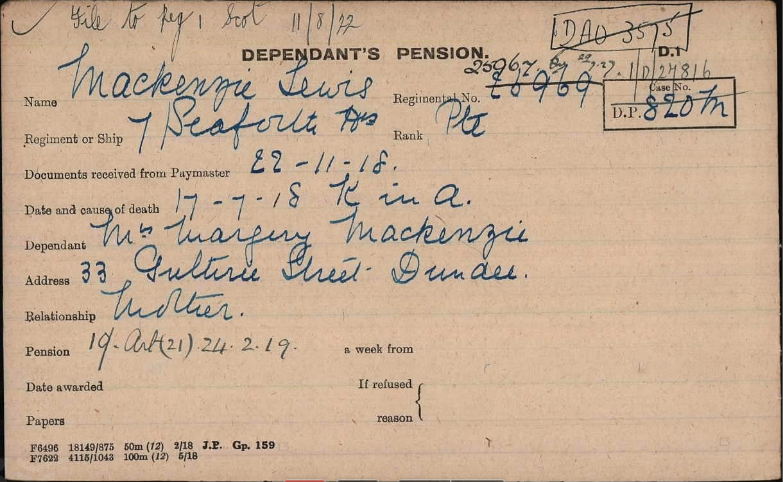 File to Reg 1 Scot 11/8/22
DAO 3575
DEPENDANT'S PENSION.
D.1
25967. 29.7.27. 1/D/27816
Name Mackenzie Lewis Regimental No. 26969
Case No.
D.P. 820 M
Regiment or Ship 7/Seaforth Hrs Rank Pte
Documents received from Paymaster 22-11-18.
Date and cause of death 17-7-18 K in A.
Dependant Mrs Margery Mackenzie
Address 33 Guthrie Street Dundee.
Relationship Mother.
Pension Art (21) 24.2.19. a week from
Date awarded If refused
Papers reason
F6496 18149/875 50m (12) 2/18 J.P. Gp. 159
F7622 4115/1043 100m (12) 5/18